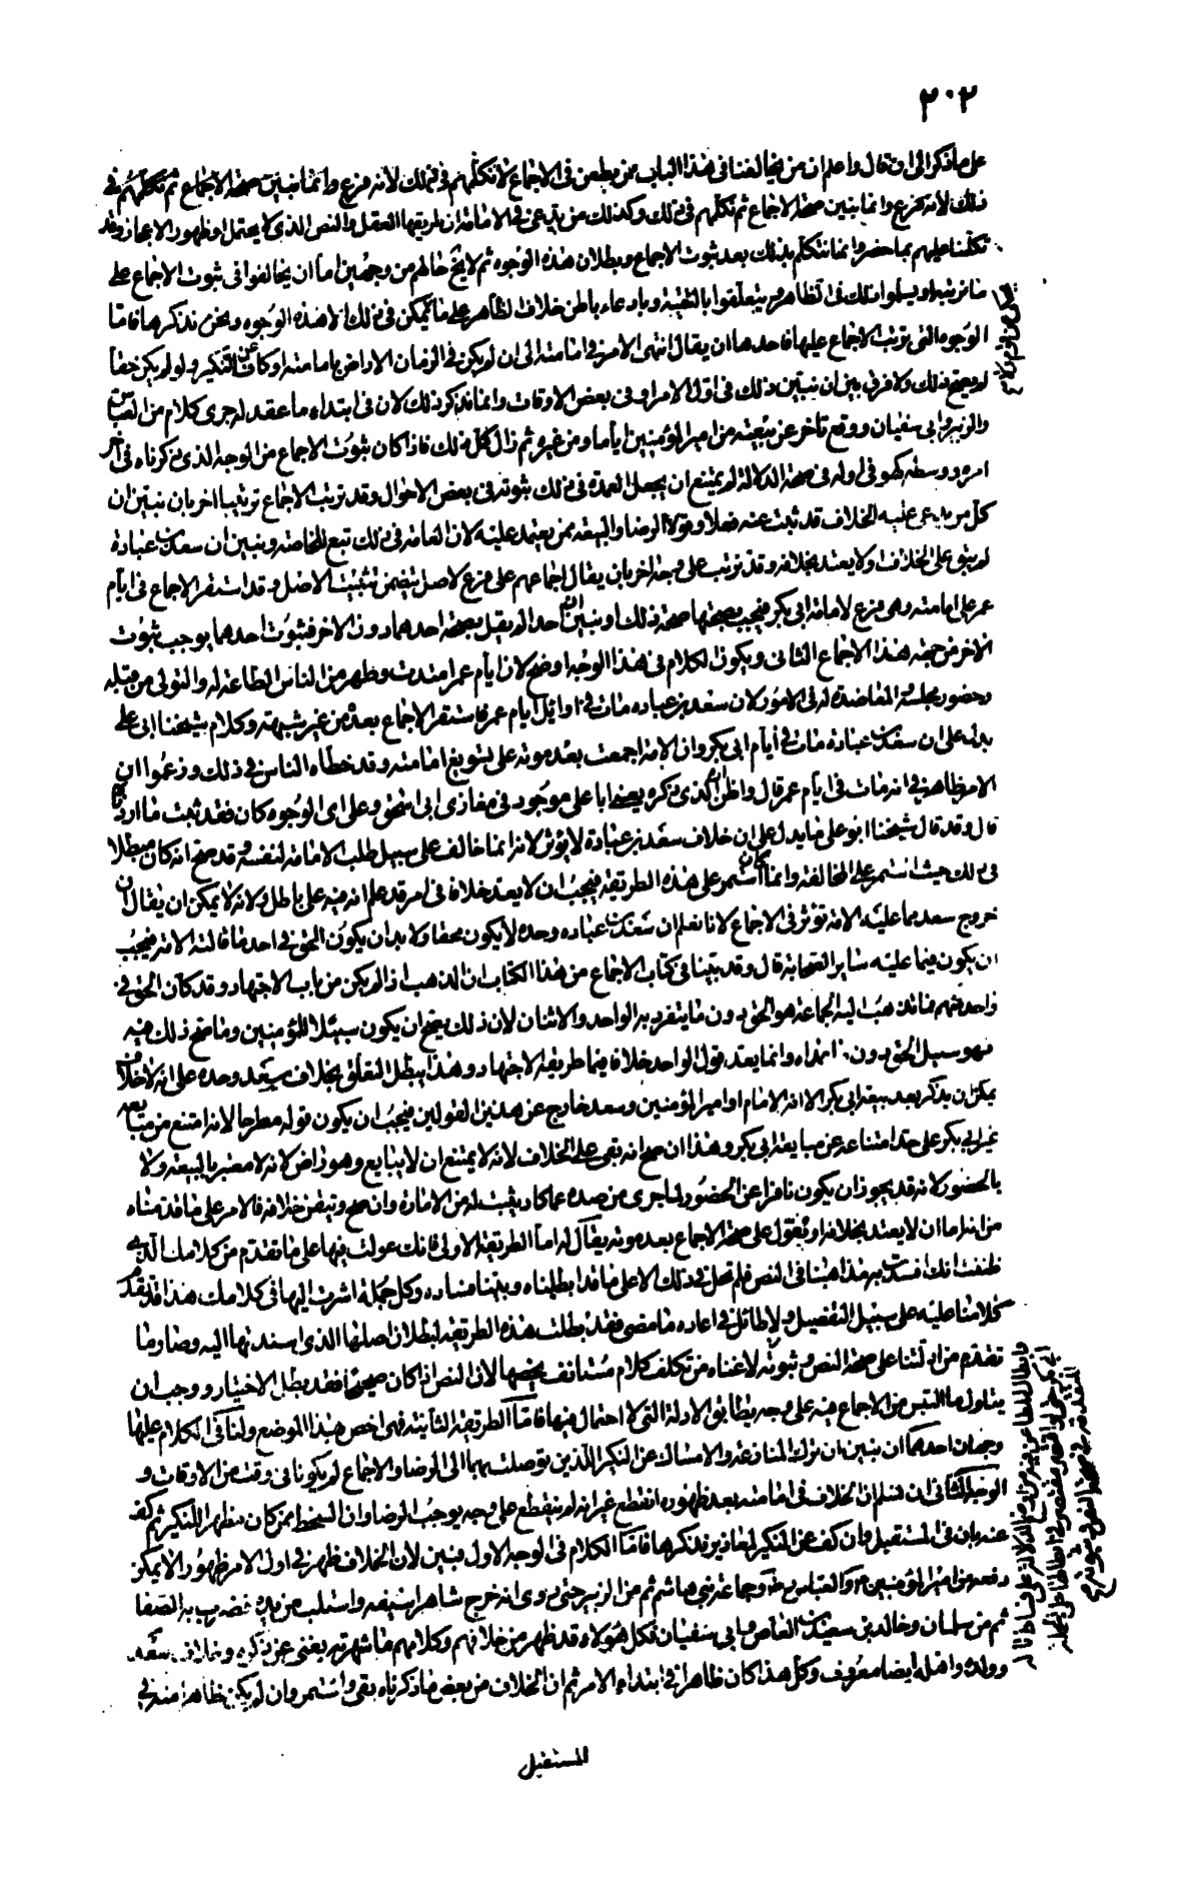 ٢٠٢
على ما ذكر الى ان قال واعلم ان من يخالفنا فى هذا الباب من يطعن فى الاجماع لا نكلمهم فى ذلك لانه فرع وانما نبين صحة الاجماع ثم نكلمهم فى
ذلك لانه فرع وانما نبين صحة الاجماع ثم نكلمهم فى ذلك وكذلك من يدعى فى الامامة ان طريقها العقل والنص الذى لا يحتمل او ظهور الاعجاز وقد
تكلمنا عليهم بما حضر وانما نتكلم بذلك بعد ثبوت الاجماع وبطلان هذه الوجوه ثم لا يخ حالهم من وجهين اما ان يخالفوا فى ثبوت الاجماع على
ما نرتبه او يسلموا ذلك فى الظاهر ويتعلقوا بالتقية وبادعاء باطن خلاف الظاهر على ما يمكن فى ذلك الا هذه الوجوه ونحن نذكرها فاما
الوجوه التى ترتب الاجماع عليها فاحدها ان يقال انتهى الامر فى امامته الى ان لم يكن فى الزمان الا راض بامامته او كاف عن النكير ولو لم يكن حقا
لم يصح ذلك ولا فرق بين ان نبين ذلك فى اول الامر او فى بعض الاوقات وانما نذكر ذلك لان فى ابتداء ما عقد له جرى كلام من العباس
والزبير وابى سفيان ووقع تأخر عن بيعته من امير المؤمنين اياما ومن غيره ثم زال كل ذلك فاذا كان ثبوت الاجماع من الوجه الذى ذكرناه فى آخر
امره ووسطه كهو فى اوله فى صحة الدلالة لم يمتنع ان يجعل العمدة فى ذلك ثبوته فى بعض الاحوال وقد نرتب الاجماع ترتيبا اخر بان نبين ان
كل من يدعى عليه الخلاف قد ثبت عنه فعلا وقولا الرضا والبيعة ممن يعتمد عليه لان العامة فى ذلك تبع للخاصة ونبين ان سعد بن عبادة
لم يبق على الخلاف ولا يعتد بخلافه وقد نرتب على وجه اخر بان يقال اجماعهم على فرع لاصل يتضمن تثبيت الاصل وقد استقر الاجماع فى ايام
عمر على امامته وهى فرع لامامة ابى بكر فيجب بصحتها صحة ذلك او نبين ان احدا لم يقل بصحة احدهما دون الاخر فثبوت احدهما يوجب ثبوت
الاخر من جهة هذا الاجماع الثانى ويكون الكلام فى هذا الوجه اوضح لان ايام عمر امتدت وظهر من الناس الطاعة له والتولى من قبله
وحضور مجلسه والمعاضدة له فى الامور لان سعد بن عبادة مات فى اوائل ايام عمر فاستقر الاجماع بعده من غير شبهة وكلام شيخنا ابى على
يدل على ان سعد بن عبادة مات فى ايام ابى بكر وان الامة اجمعت بعد موته على تسويغ امامته وقد خطاه الناس فى ذلك وزعموا ان
الامر ظاهر فى انه مات فى ايام عمر قال واظن ان الذى ذكره شيخنا ابا على موجود فى مغازى ابى اسحق وعلى اى الوجوه كان فقد ثبت ما اردناه
قال وقد قال شيخنا ابو على ما يدل على ان خلاف سعد بن عبادة لا يؤثر لانه انما خالف على سبيل طلب الامامة لنفسه وقد صح انه كان مبطلا
فى ذلك حيث استمر على المخالفة وانما كان استمر على هذه الطريقة فيجب ان لا يعتد خلافا فى امر قد علم انه فيه على باطل ولانه لا يمكن ان يقال ان
خروج سعد مما عليه الامة تؤثر فى الاجماع لانا نعلم ان سعد بن عبادة وحده لا يكون محقا ولا بد ان يكون الحق فى احد ما قالته الامة فيجب
ان يكون فيما عليه سائر الصحابة قال وقد بينا فى كتاب الاجماع من هذا الكتاب ان المذهب اذا لم يكن من باب الاجتهاد وقد كان الحق فى
واحد منهم فما تذهب اليه الجماعة هو الحق دون ما يتفرد به الواحد والاثنان لان ذلك يصح ان يكون سبيلا للمؤمنين وما صح ذلك فيه
فهو سبيل الحق دون ما عداه وانما يعتد قول الواحد خلافا فيما طريقه الاجتهاد وهذا يبطل التعلق بخلاف سعد وحده على انه لا خلاف
يمكن ان يذكر بعد بيعة ابى بكر الا انه الامام او امير المؤمنين وسعد خارج عن هذين القولين فيجب ان يكون قوله مطرحا لانه امتنع من مبايعة
غير ابى بكر على حد امتناعه عن مبايعة ابى بكر وهذا ان صح انه بقى على الخلاف لانه لا يمتنع ان لا يبايع وهو راض لانه لا معتبر بالبيعة ولا
بالحضور لانه قد يجوز ان يكون نافرا عن الحضور لما جرى من صده عما كاد يثبت له من الامارة وان صح وتيقن خلافه فالامر على ما قدمناه
من انه اما ان لا يعتد بخلافه او نعول على صحة الاجماع بعد موته يقال له اما الطريقة الاولى فانك عولت فيها على ما تقدم من كلامك الذى
ظننت انك افسدت به مذاهبنا فى النص فلم تحل فى ذلك الا على ما قد ابطلناه وبينا فساده وكل جملة اشرت اليها فى كلامك هذا قد تقدم
كلامنا عليه على سبيل التفصيل ولا طائل فى اعادة ما مضى فقد بطلت هذه الطريقة لبطلان اصلها الذى اسندتها اليه وضاوما
تقدم من ادلتنا على صحة النص وثبوته لا غناء من تكلف كلام مستانف يخصها لان النص اذا كان صحيحا فقد بطل الاختيار ووجب ان
يتاول ما التبس من الاجماع فيه على وجه يطابق الادلة التى لا احتمال فيها فاما الطريقة الثانية فهى اخص بهذا الموضع ولنا فى الكلام عليها
وجهان احدهما ان نبين ان ترك المنازعة والامساك عن النكير الذين توصلت بهما الى الرضا والاجماع لم يكونا فى وقت من الاوقات و
الوجه الثانى ان نسلم ان الخلاف فى امامته بعد ظهوره انقطع غير انه لم ينقطع على وجه يوجب الرضا وان السخط ممن كان مظهرا للنكير ثم كف
عنه باق فى المستقبل وان كف عن النكير لمعاذير نذكرها فاما الكلام فى الوجه الاول فبين لان الخلاف ظهر فى اول الامر ظهورا لا يمكن
دفعه من امير المؤمنين والعباس وجماعة بنى هاشم ثم من الزبير حتى روى انه خرج شاهرا سيفه واستلب من يده فضرب به الصفا
ثم من سلمان وخالد بن سعيد بن العاص وابى سفيان فكل هؤلاء قد ظهر من خلافهم وكلامهم ما شهرته يغنى عن ذكره وخلاف سعد
وولده واهله ايضا معروف وكل هذا كان ظاهرا فى ابتداء الامر ثم ان الخلاف من بعض ما ذكرناه بقى واستمر وان لم يكن ظاهرا منه فى
المستقبل